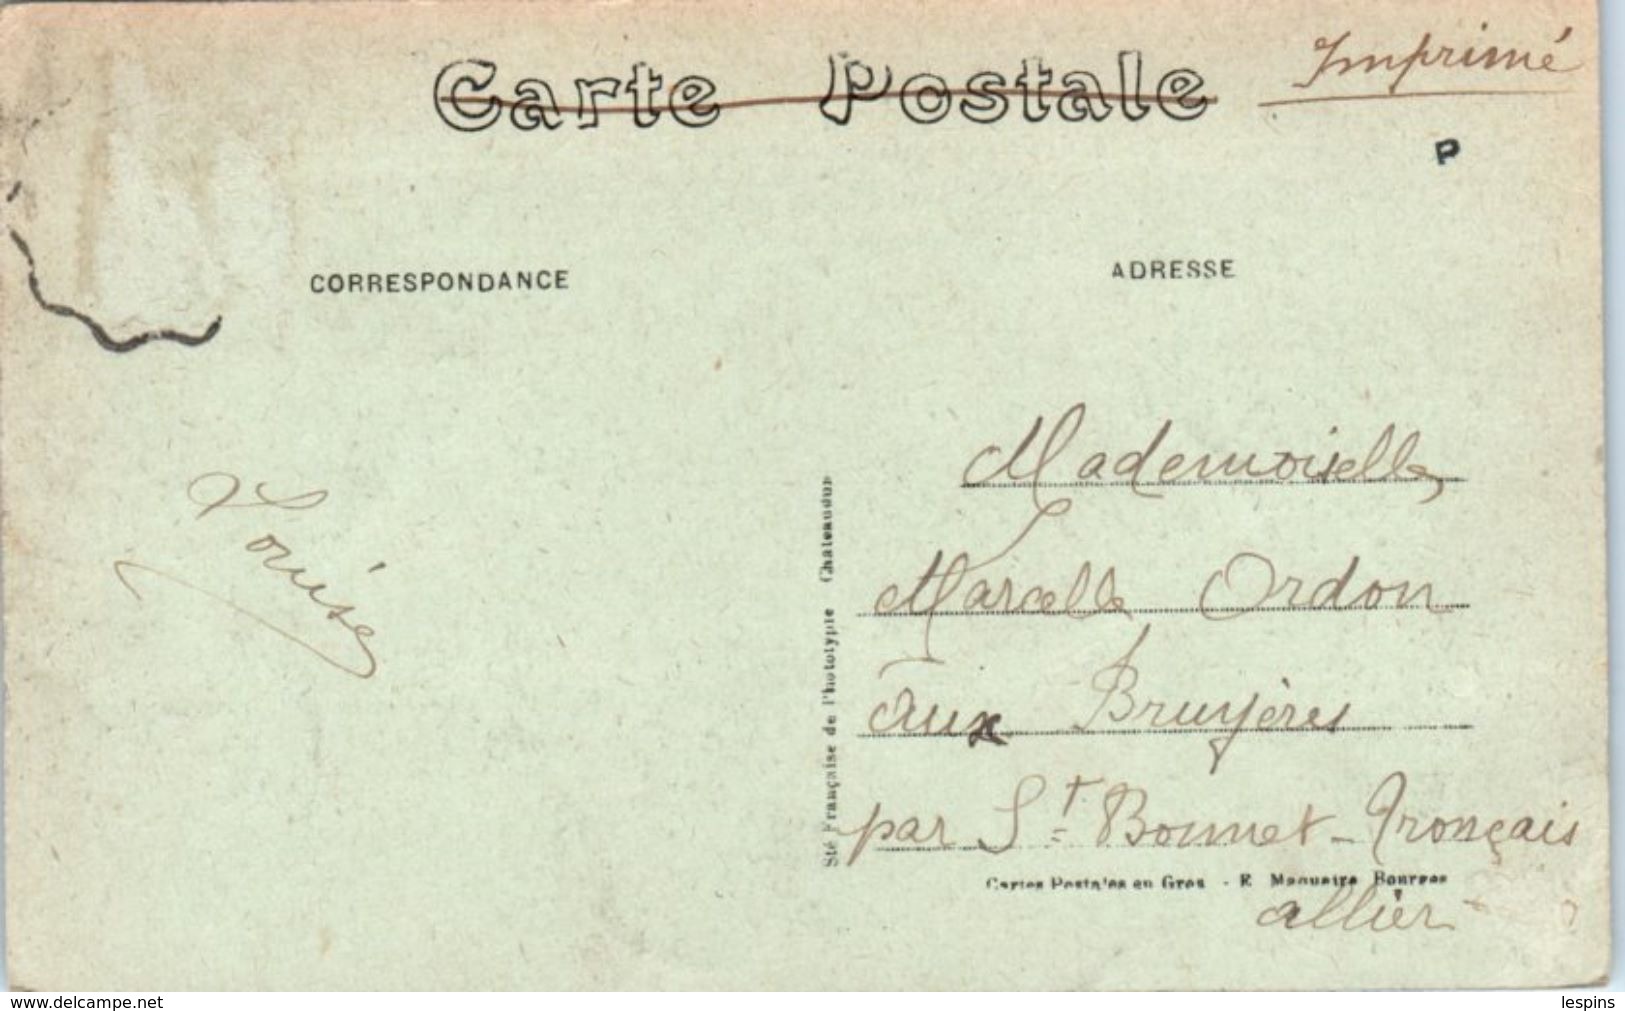 Carte Postale
Imprimé
P
CORRESPONDANCE
ADRESSE
Louise
Sté Française de Phototypie Chateaudun
Mademoiselle,
Marcelle Ordon
aux Bruyères
par St Bonnet-Tronçais
Cartes Postales en Gros - E. Maquaire Bourges
allier
www.delcampe.net
lespins